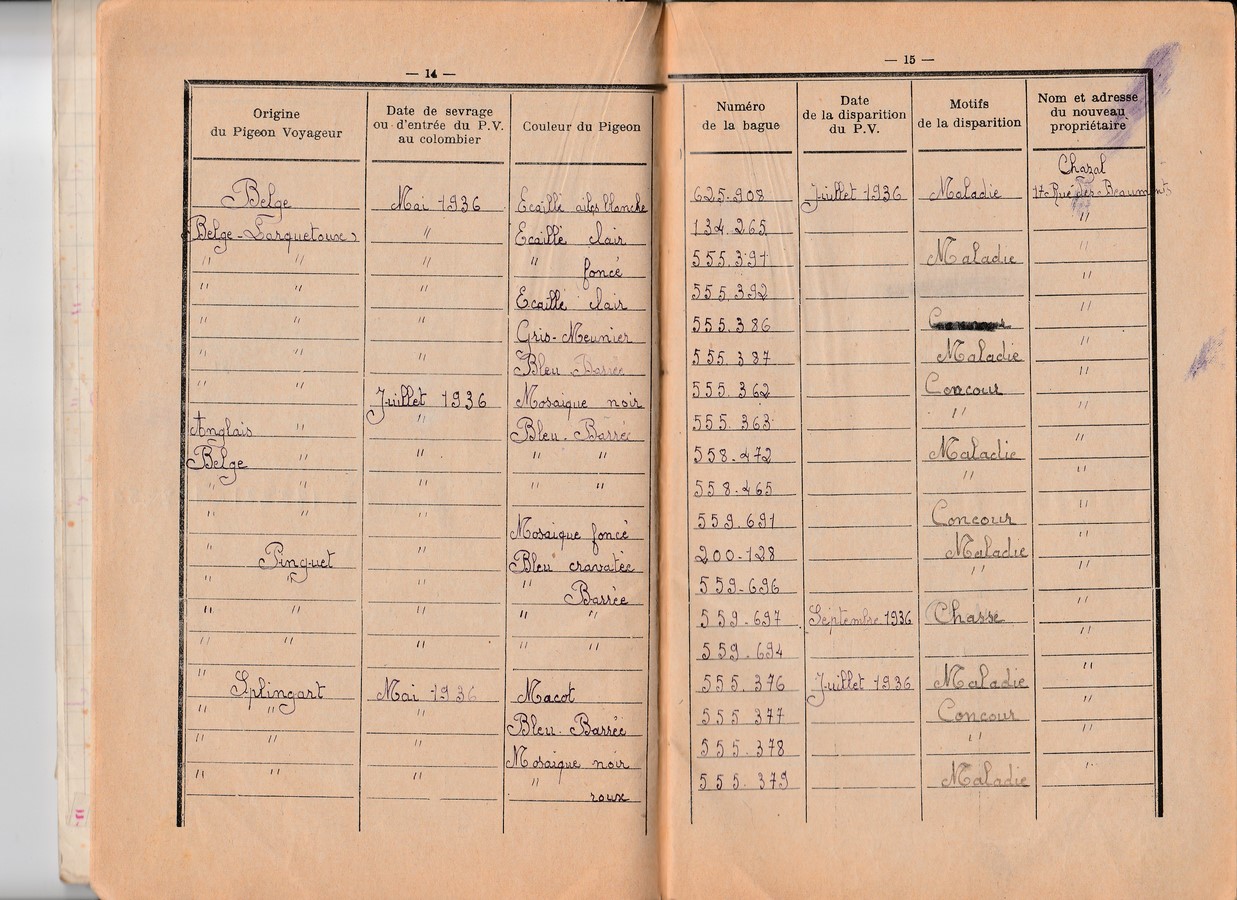 — 14 —
Origine
du Pigeon Voyageur
Date de sevrage
ou d'entrée du P.V.
au colombier
Couleur du Pigeon
Belge Mai 1936 Ecaillé ailes blanche
Belge - " Ecaillé clair
" " " " foncé
" " " Ecaillé clair
" " " Gris-Meunier
" " " Bleu Barrée
" Juillet 1936 Mosaique noir
Anglais " " Bleu-Barrée
Belge " " " "
" " " " "
" " " Mosaique foncé
" Pinguet " Bleu cravatée
" " " Barrée
" " " " "
" " " " "
" Splingart Mai 1936 Macot
" " " Bleu-Barrée
" " " Mosaique noir
" " " " roux
— 15 —
Numéro
de la bague
Date
de la disparition
du P.V.
Motifs
de la disparition
Nom et adresse
du nouveau
propriétaire
Chazal
625-908 Juillet 1936 Maladie 17 Rue des-Beaumonts
134.265 "
555.391 Maladie "
555.392 "
555.386 "
555.387 Maladie "
555.362 Concour "
555.363 " "
558-472 Maladie "
558-465 " "
559.691 Concour "
200-128 Maladie "
559-696 " "
559-697 Septembre 1936 Chasse "
559-694 "
555.376 Juillet 1936 Maladie "
555 377 Concour "
555.378 " "
555.379 Maladie "